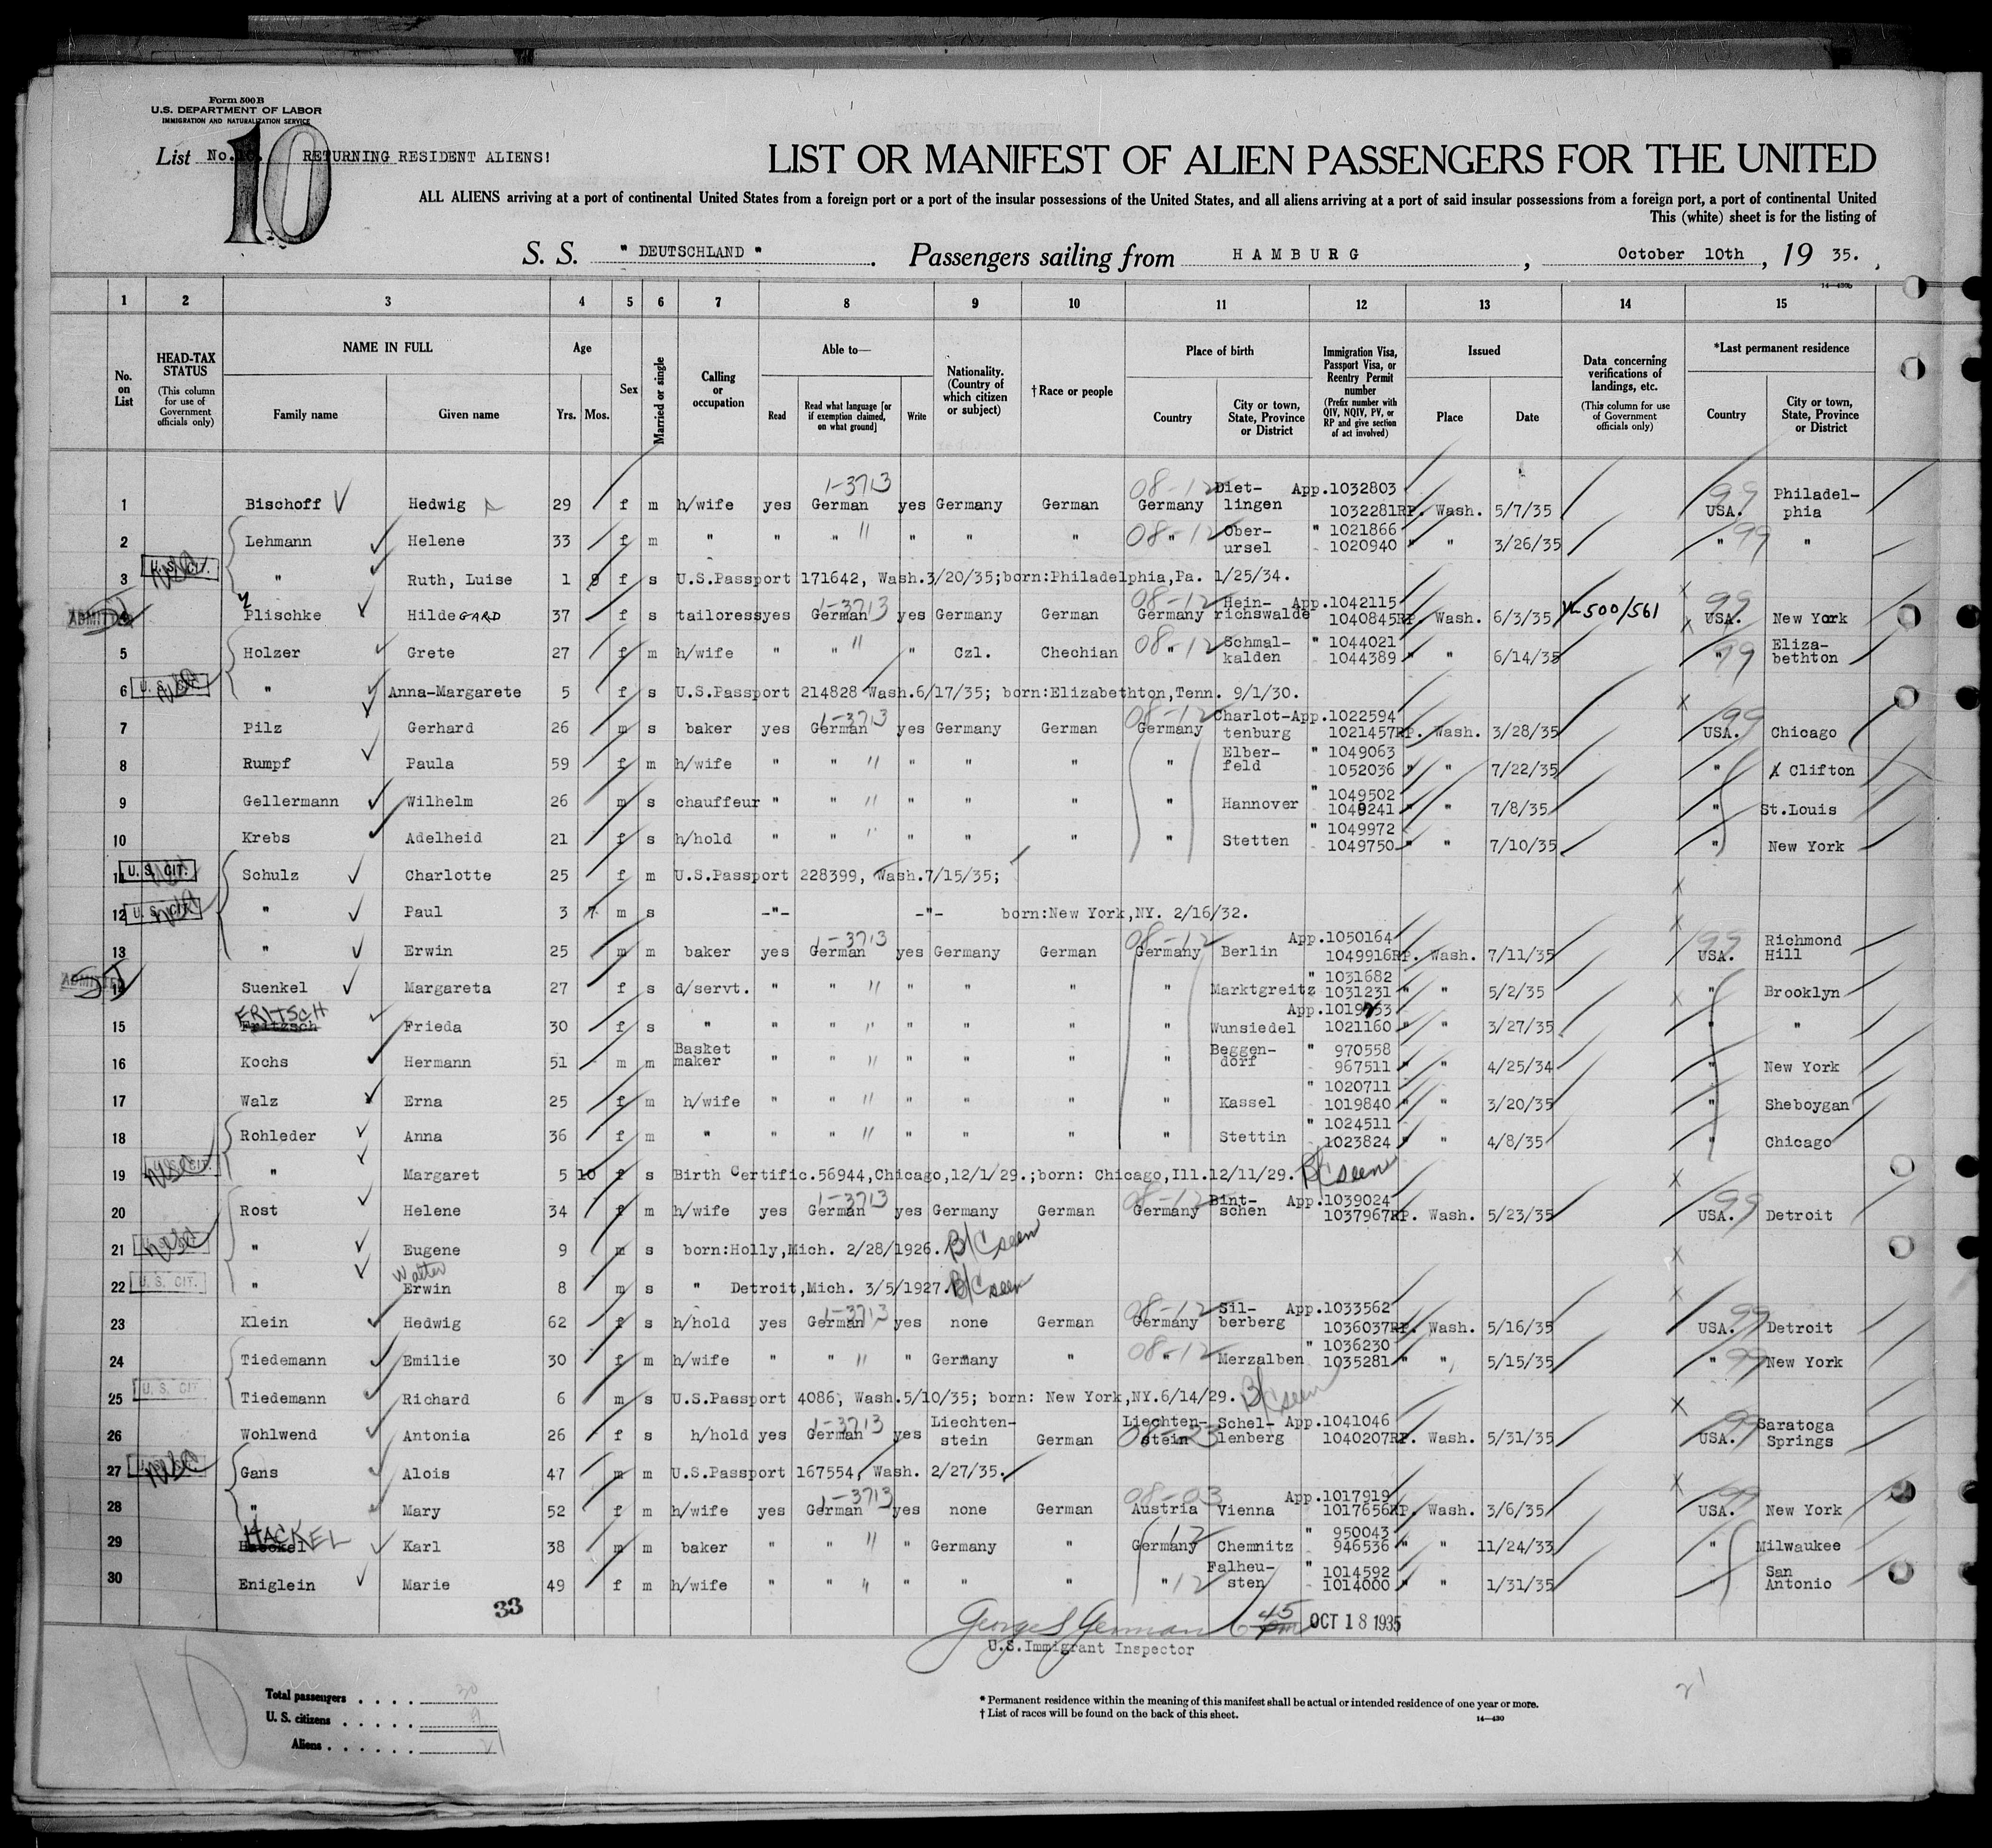 Form 500 B
U.S. DEPARTMENT OF LABOR
IMMIGRATION AND NATURALIZATION SERVICE
10
List No. RETURNING RESIDENT ALIENS!
LIST OR MANIFEST OF ALIEN PASSENGERS FOR THE UNITED
ALL ALIENS arriving at a port of continental United States from a foreign port or a port of the insular possessions of the United States, and all aliens arriving at a port of said insular possessions from a foreign port, a port of continental United
This (white) sheet is for the listing of
S. S. " DEUTSCHLAND " . Passengers sailing from HAMBURG , October 10th , 19 35. ,
14—430b
1 2 3 4 5 6 7 8 9 10 11 12 13 14 15
No. on List
HEAD-TAX STATUS (This column for use of Government officials only)
NAME IN FULL Family name Given name
Age Yrs. Mos.
Sex
Married or single
Calling or occupation
Able to— Read Read what language [or if exemption claimed, on what ground] Write
Nationality. (Country of which citizen or subject)
† Race or people
Place of birth Country City or town, State, Province or District
Immigration Visa, Passport Visa, or Reentry Permit number (Prefix number with QIV, NQIV, PV, or RP and give section of act involved)
Issued Place Date
Data concerning verifications of landings, etc. (This column for use of Government officials only)
*Last permanent residence Country City or town, State, Province or District
1 Bischoff Hedwig 29 f m h/wife yes 1-3713 German yes Germany German 08-12 Germany Diet-lingen App.1032803 1032281RP. Wash. 5/7/35 99 USA. Philadel-phia
2 Lehmann Helene 33 f m " " " " " " " 08-12 " Ober-ursel " 1021866 1020940 " " 3/26/35 " 99 "
3 U.S. CIT. " Ruth, Luise 1 9 f s U.S.Passport 171642, Wash.3/20/35;born:Philadelphia,Pa. 1/25/34.
ADMITTED 4 Plischke HildeGARD 37 f s tailoress yes 1-3713 German yes Germany German 08-12 Germany Hein-richswalde App.1042115 1040845RP. Wash. 6/3/35 500/561 99 USA. New York
5 Holzer Grete 27 f m h/wife " " " " Czl. Chechian 08-12 " Schmal-kalden " 1044021 1044389 " " 6/14/35 " 99 Eliza-bethton
6 U.S. CIT. " Anna-Margarete 5 f s U.S.Passport 214828 Wash.6/17/35; born:Elizabethton,Tenn. 9/1/30.
7 Pilz Gerhard 26 m s baker yes 1-3713 German yes Germany German 08-12 Germany Charlot-tenburg App.1022594 1021457RP. Wash. 3/28/35 99 USA. Chicago
8 Rumpf Paula 59 f m h/wife " " " " " " " " Elber-feld " 1049063 1052036 " " 7/22/35 " Clifton
9 Gellermann Wilhelm 26 m s chauffeur " " " " " " " Hannover " 1049502 1049241 " " 7/8/35 " St.Louis
10 Krebs Adelheid 21 f s h/hold " " " " " " Stetten " 1049972 1049750 " " 7/10/35 " New York
11 U.S. CIT. Schulz Charlotte 25 f m U.S.Passport 228399, Wash.7/15/35;
12 U.S. CIT. " Paul 3 7 m s -"- -"- born:New York,NY. 2/16/32.
13 " Erwin 25 m m baker yes 1-3713 German yes Germany German 08-12 Germany Berlin App.1050164 1049916RP. Wash. 7/11/35 99 USA. Richmond Hill
ADMITTED 14 Suenkel Margareta 27 f s d/servt. " " " " " " " Marktgreitz " 1031682 1031231 " " 5/2/35 " Brooklyn
15 FRITSCH Fritzsch Frieda 30 f s " " " " " " " " Wunsiedel App.1019753 1021160 " " 3/27/35 " "
16 Kochs Hermann 51 m m Basket maker " " " " " " " Beggen-dorf " 970558 967511 " " 4/25/34 " New York
17 Walz Erna 25 f m h/wife " " " " " " " Kassel " 1020711 1019840 " " 3/20/35 " Sheboygan
18 Rohleder Anna 36 f m " " " " " " " " Stettin " 1024511 1023824 " " 4/8/35 " Chicago
19 U.S. CIT. " Margaret 5 10 f s Birth Certific.56944,Chicago,12/1/29.;born: Chicago,Ill.12/11/29. B/C seen
20 Rost Helene 34 f m h/wife yes 1-3713 German yes Germany German 08-12 Germany Bint-schen App.1039024 1037967RP. Wash. 5/23/35 99 USA. Detroit
21 " Eugene 9 m s born:Holly,Mich. 2/28/1926. B/C seen
22 U.S. CIT. " Walter Erwin 8 m s " Detroit,Mich. 3/5/1927. B/C seen
23 Klein Hedwig 62 f s h/hold yes 1-3713 German yes none German 08-12 Germany Sil-berberg App.1033562 1036037RP. Wash. 5/16/35 99 USA. Detroit
24 Tiedemann Emilie 30 f m h/wife " " " " Germany " 08-12 " Merzalben " 1036230 1035281 " " 5/15/35 " 99 New York
25 U.S. CIT. Tiedemann Richard 6 m s U.S.Passport 4086, Wash.5/10/35; born: New York,NY.6/14/29. B/C seen
26 Wohlwend Antonia 26 f s h/hold yes 1-3713 German yes Liechten-stein German Liechten-stein 08-23 Schel-lenberg App.1041046 1040207RP. Wash. 5/31/35 99 USA. Saratoga Springs
27 U.S. CIT. Gans Alois 47 m m U.S.Passport 167554, Wash. 2/27/35.
28 " Mary 52 f m h/wife yes 1-3713 German yes none German 08-03 Austria Vienna App.1017919 1017656RP. Wash. 3/6/35 99 USA. New York
29 HACKEL Haeckel Karl 38 m m baker " " " " Germany " 12 Germany Chemnitz " 950043 946536 " " 11/24/33 " Milwaukee
30 Eniglein Marie 49 f m h/wife " " " " " " " 12 Falheu-sten " 1014592 1014000 " " 1/31/35 " San Antonio
33
George S German 6 45 pm OCT 18 1935
U.S.Immigrant Inspector
10
Total passengers . . . . 30
U. S. citizens . . . . . 9
Aliens . . . . . . 21
* Permanent residence within the meaning of this manifest shall be actual or intended residence of one year or more.
† List of races will be found on the back of this sheet.
14—430
21